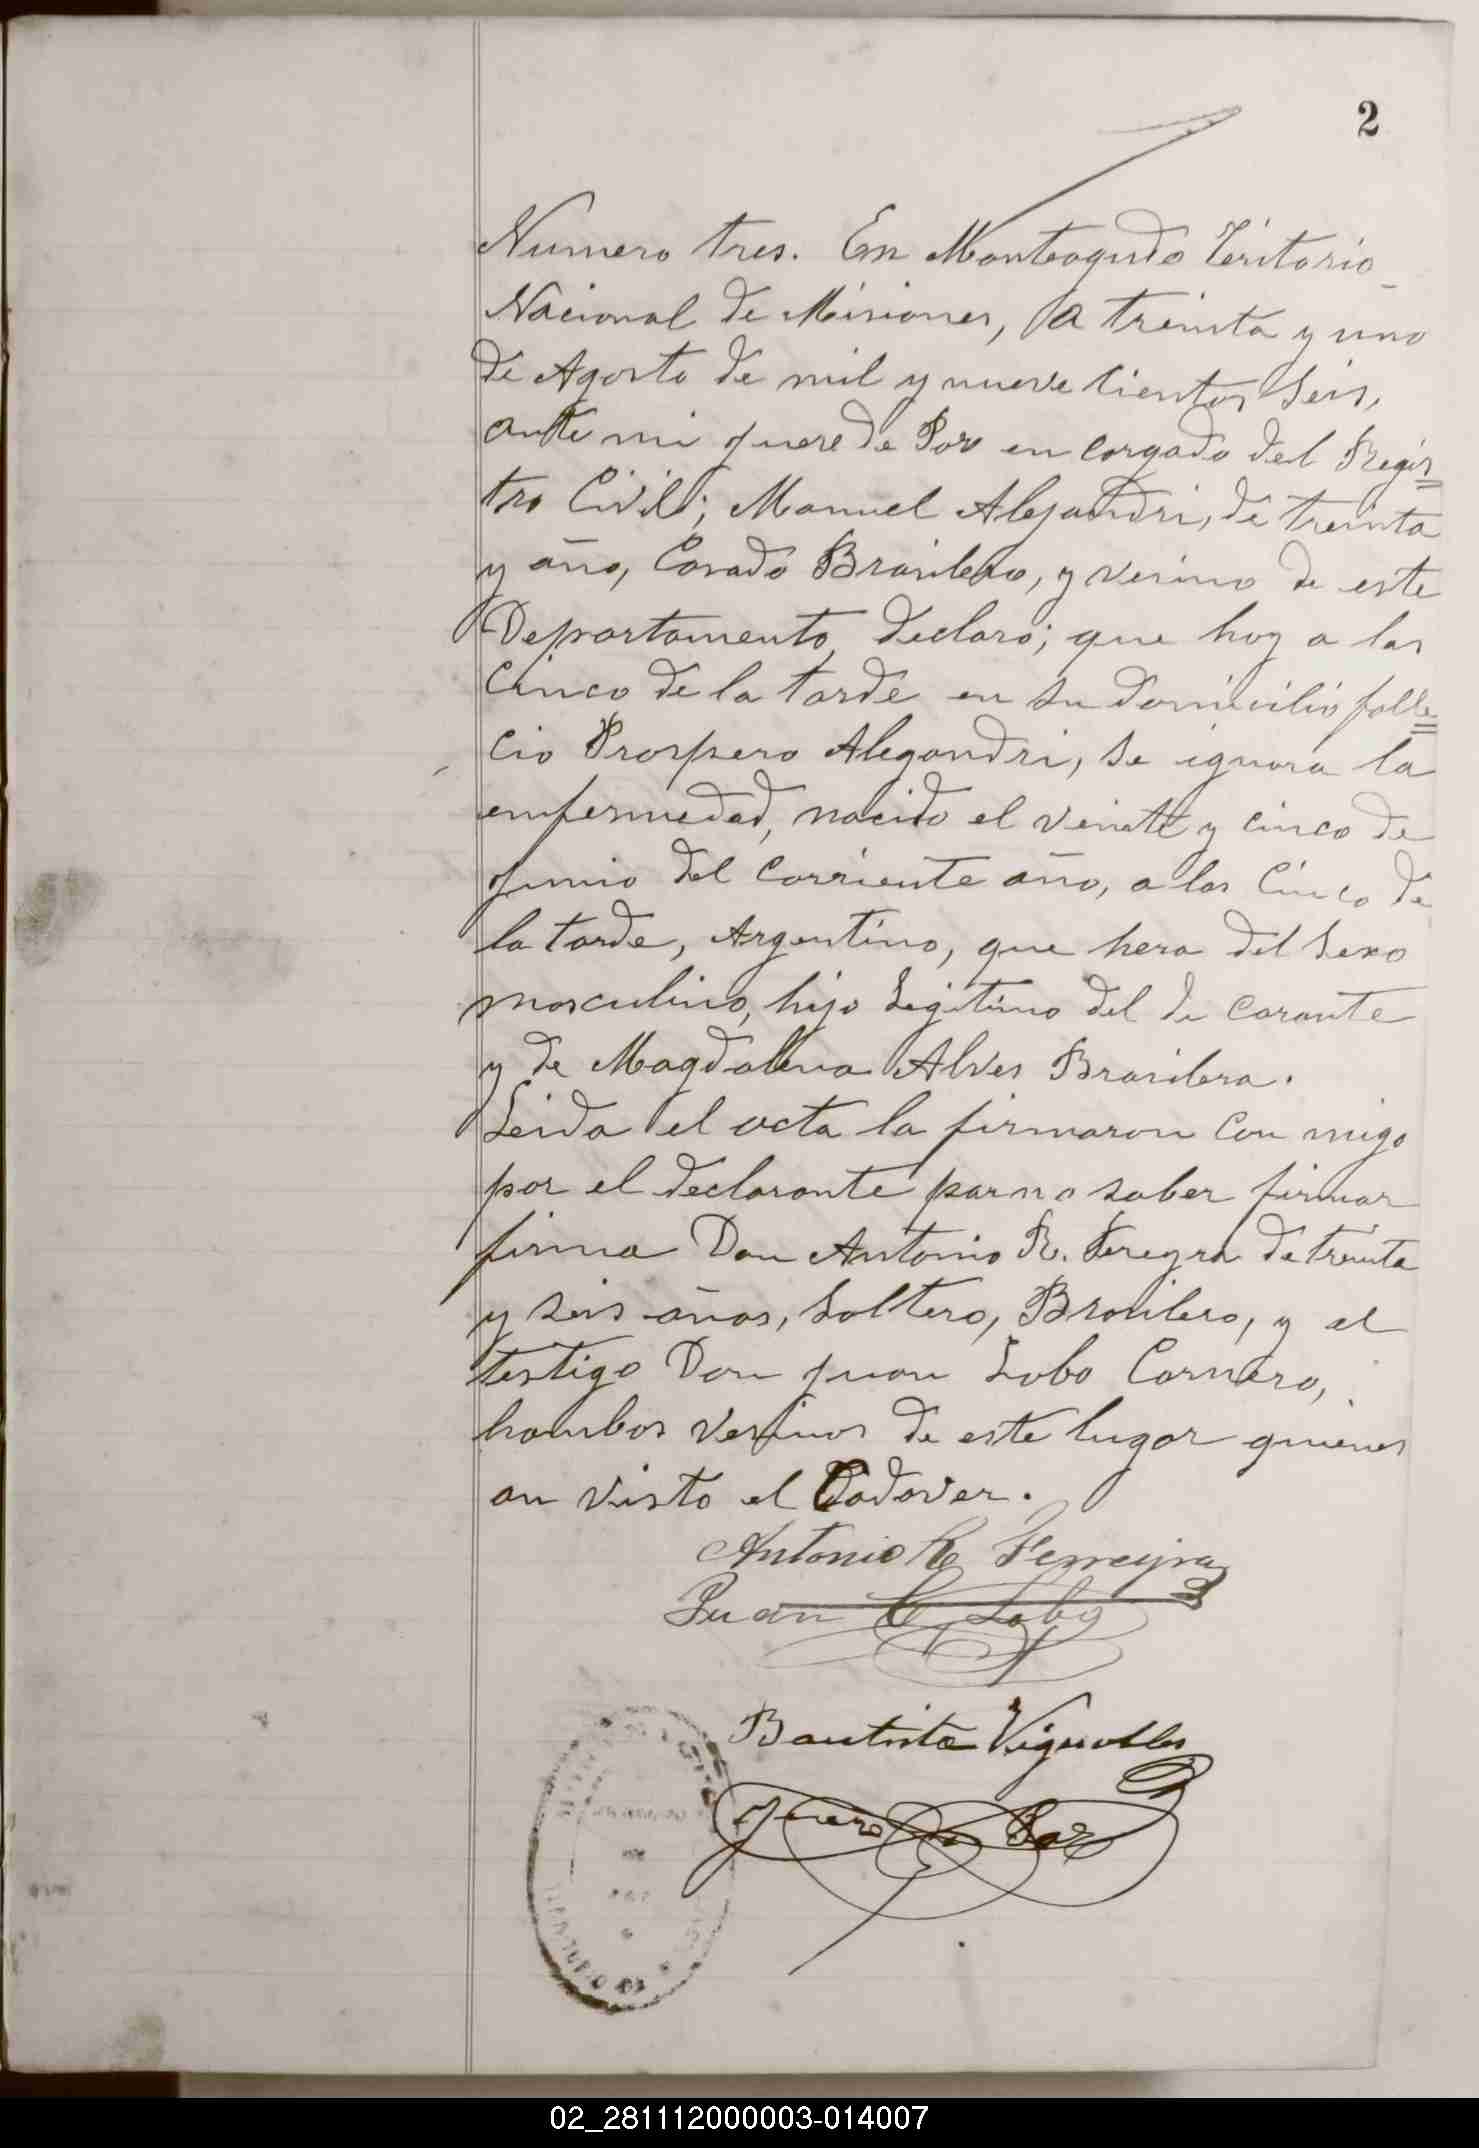 2
Numero tres. En Monteagudo Teritorio
Nacional de Misiones, a treinta y uno
de Agosto de mil y nueve cientos seis,
ante mi Juez de Paz en cargado del Regis=
tro Civil; Manuel Alejandri, de treinta
y año, Casado Brasilero, y vesino de este
Departamento, declaro; que hoy a las
Cinco de la tarde en su domicilio falle=
cio Prospero Alegandri, se ignora la
enfermedad, nacido el veinte y cinco de
Junio del corriente año, a las Cinco de
la tarde, Argentino, que hera del Sexo
masculino, hijo Legitimo del de carante
y de Magdalena Alves Brasilera.
Leida el acta la firmaron con migo
por el declarante par no saber firmar
firma Don Antonio R. Fereyra de treinta
y seis años, Soltero, Brasilero, y el
testigo Don Juan Lobo Carnero,
hambos vesinos de este lugar quienes
an visto el Cadaver.
Antonio R Ferreyra
Juan C Lobo
Bautista Vignolles
Juez de Paz
TERRITORIO DE
02_281112000003-014007